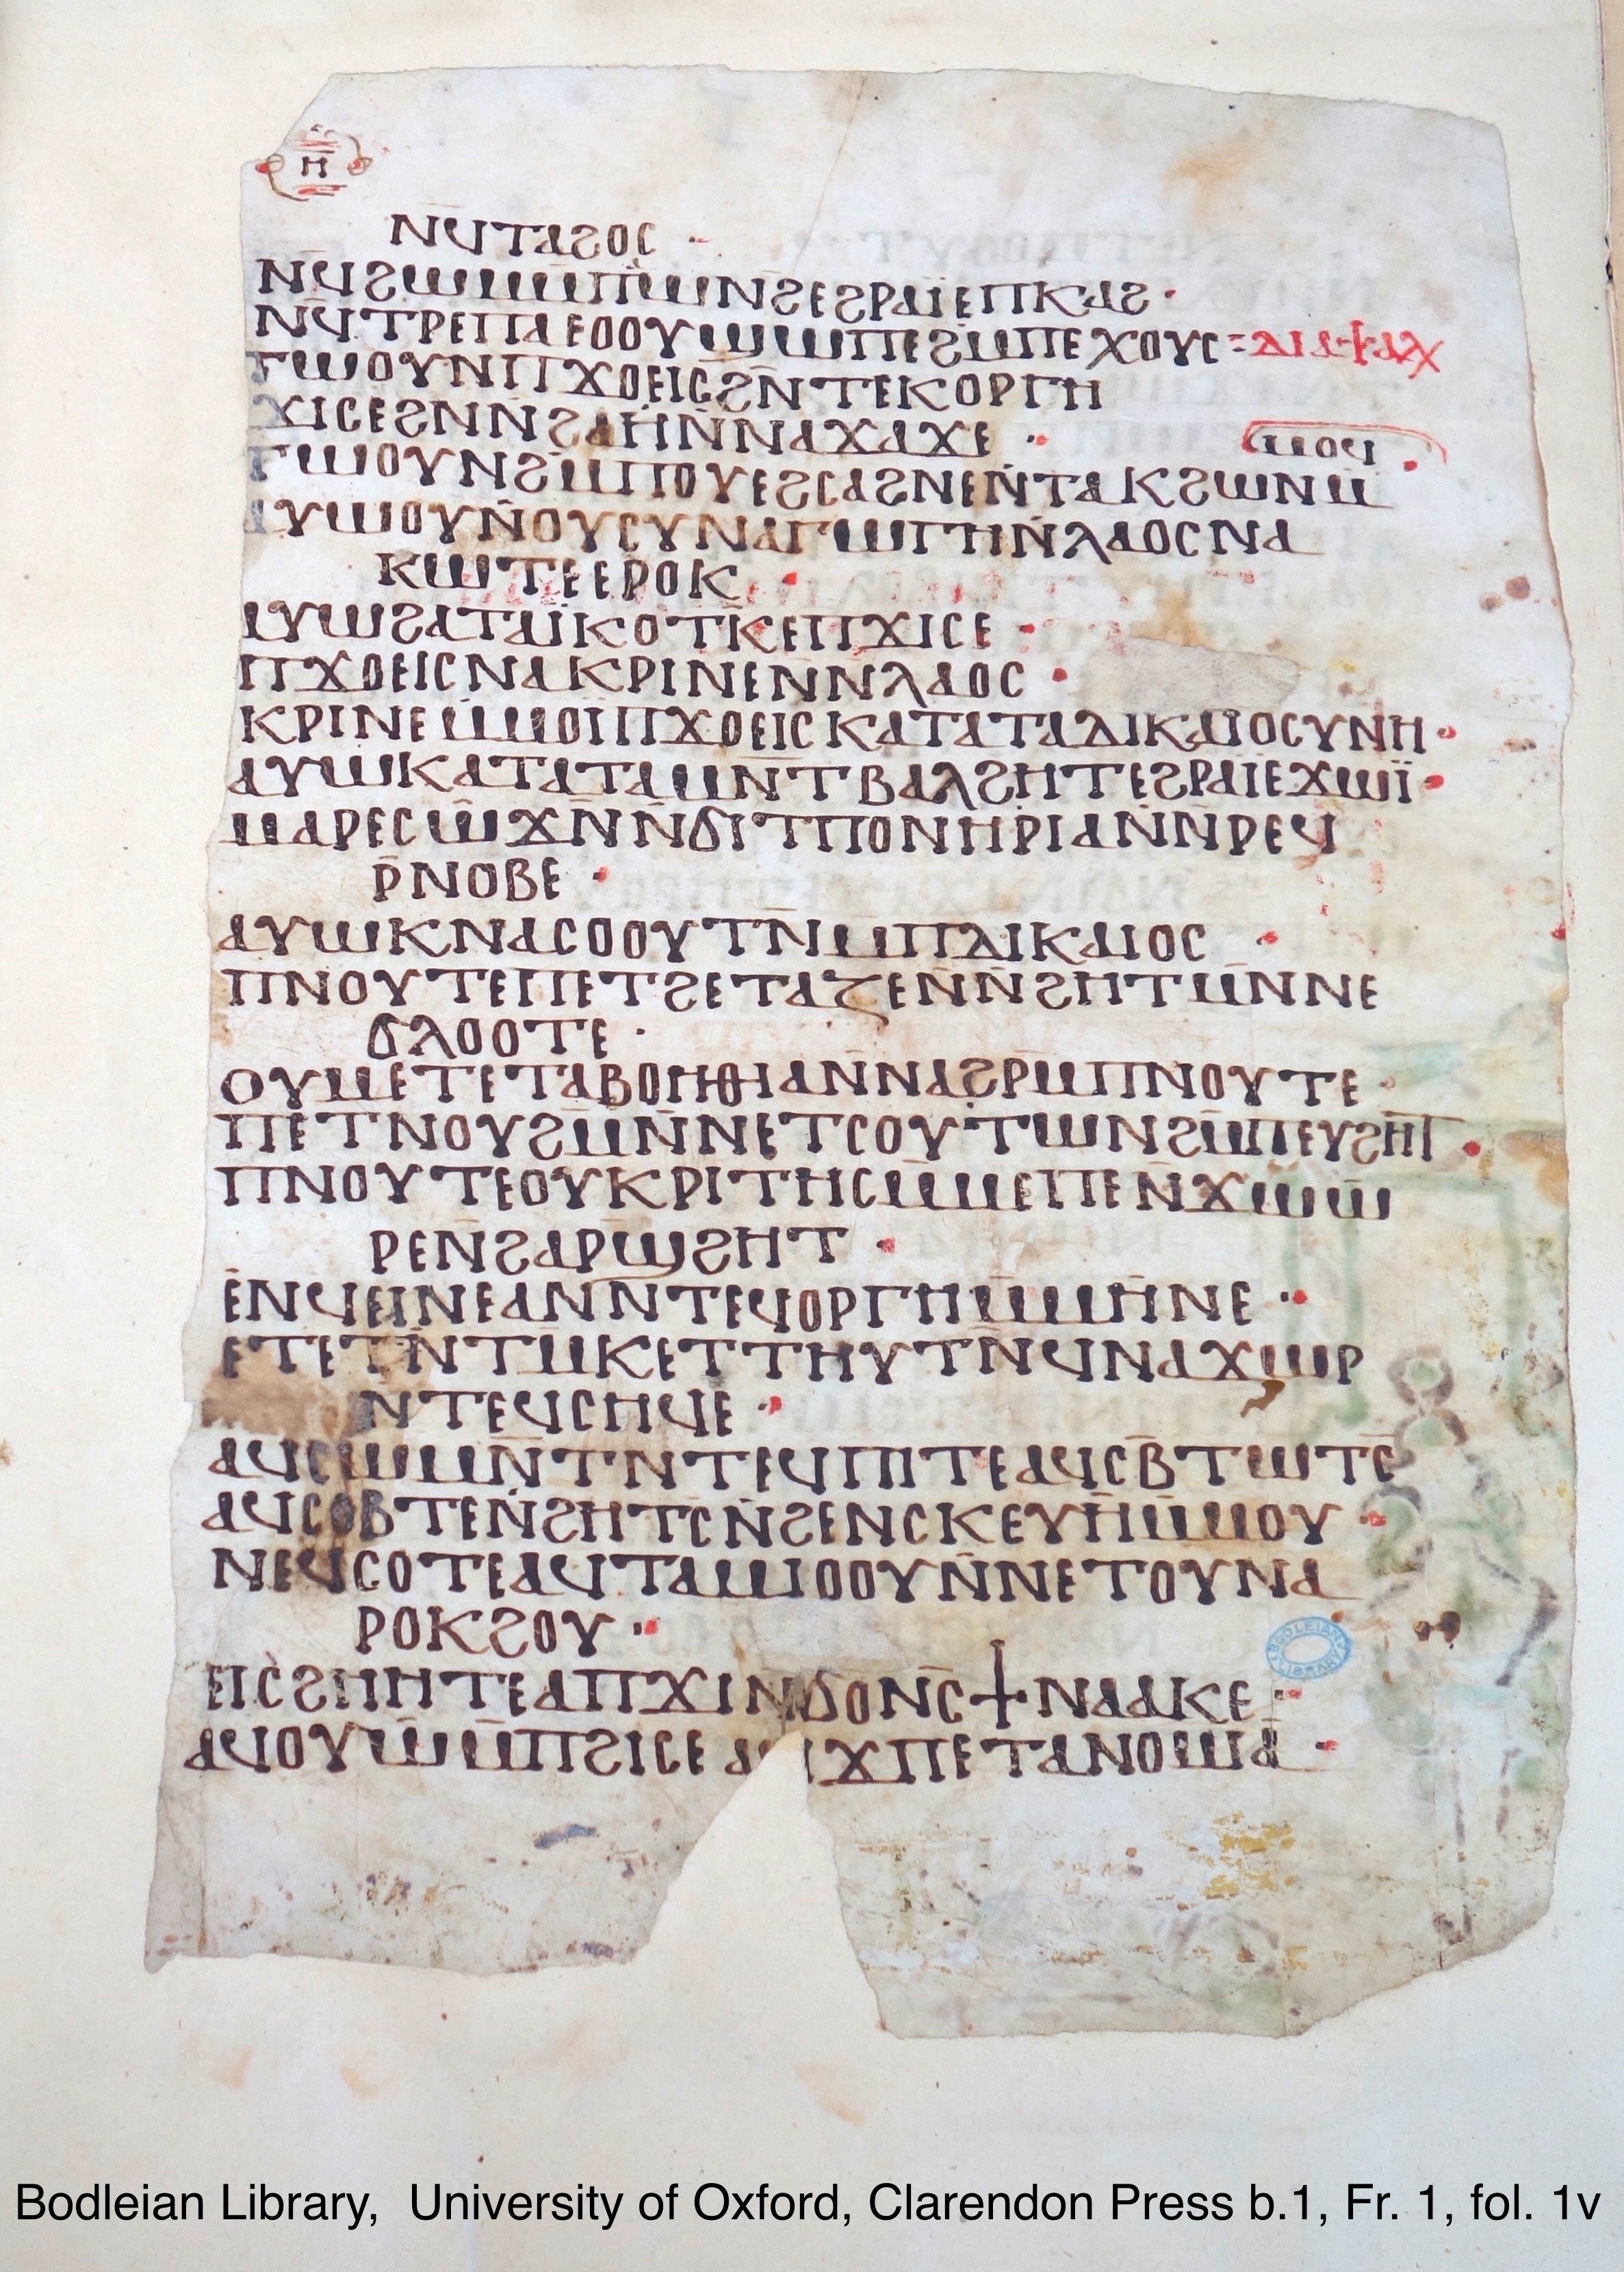 ⲏ̅
ⲛϥⲧⲁϩⲟⲥ ·
ⲛϥϩⲱⲙⲙ̅ⲡⲱⲛϩⲉϩⲣⲁⲓ̈ⲉⲡⲕⲁϩ·
ⲛϥⲧⲣⲉⲡⲁⲉⲟⲟⲩϣⲱⲡⲉϩⲙⲡⲉⲭⲟⲩⲥ=ⲇⲓⲁⲯⲁⲗ
ⲧⲱⲟⲩⲛⲡϫⲟⲉⲓⲥϩⲛ̅ⲧⲉⲕⲟⲣⲅⲏ
ϫⲓⲥⲉϩⲛⲛ̅ϩⲁⲏⲛ̅ⲛⲁϫⲁϫⲉ ·
ⲙⲟϥ
ⲧⲱⲟⲩⲛϩⲙ̅ⲡⲟⲩⲉϩⲥⲁϩⲛⲉⲛ̅ⲧⲁⲕϩⲱⲛⲙ̅
ⲁⲩⲱⲟⲩⲛ̅ⲟⲩⲥⲩⲛⲁⲅⲱⲅⲏⲛ̅ⲗⲁⲟⲥⲛⲁ
ⲕⲱⲧⲉⲉⲣⲟⲕ ·
ⲁⲩⲱϩⲁⲧⲁⲓ̈ⲕⲟⲧⲕ̅ⲉⲡϫⲓⲥⲉ ·
ⲡϫⲟⲉⲓⲥⲛⲁⲕⲣⲓⲛⲉⲛⲛ̅ⲗⲁⲟⲥ ·
ⲕⲣⲓⲛⲉⲙ̅ⲙⲟⲓⲡϫⲟⲉⲓⲥⲕⲁⲧⲁⲧⲁⲇⲓⲕⲁⲓ̈ⲟⲥⲩⲛⲏ·
ⲁⲩⲱⲕⲁⲧⲁⲧⲁⲙⲛ̅ⲧⲃⲁⲗϩⲏⲧⲉϩⲣⲁⲓ̈ⲉϫⲱⲓ̈·
ⲙⲁⲣⲉⲥⲱ̅ϫⲛ̅ⲛ̅ϭⲓⲧⲡⲟⲛⲏⲣⲓⲁⲛ̅ⲛ̅ⲣⲉϥ
ⲣ̅ⲛⲟⲃⲉ ·
ⲁⲩⲱⲕⲛⲁⲥⲟⲟⲩⲧⲛ̅ⲙⲡⲇⲓⲕⲁⲓⲟⲥ ·
ⲡⲛⲟⲩⲧⲉⲡⲉⲧϩⲉⲧⲁⲍⲉⲛ̅ⲛ̅ϩⲏⲧⲙⲛ̅ⲛⲉ
ϭⲗⲟⲟⲧⲉ ·
ⲟⲩⲙⲉⲧⲉⲧⲁⲃⲟⲏⲑⲓⲁⲛ̅ⲛⲁϩⲣⲙ̅ⲡⲛⲟⲩⲧⲉ·
ⲡⲉⲧⲛⲟⲩϩⲙ̅ⲛ̅ⲛⲉⲧⲥⲟⲩⲧⲱⲛϩⲙ̅ⲡⲉⲩϩⲏⲧ·
ⲡⲛⲟⲩⲧⲉⲟⲩⲕⲣⲓⲧⲏⲥⲙ̅ⲙⲉⲡⲉⲛ̅ϫⲱⲱ
ⲣⲉⲛ̅ϩⲁⲣϣ̅ϩⲏⲧ ·
ⲉⲛϥⲉⲓⲛⲉⲁⲛⲛ̅ⲧⲉϥⲟⲣⲅⲏⲙ̅ⲙⲏⲛⲉ ·
ⲉⲧⲉⲧⲛ̅ⲧⲙ̅ⲕⲉⲧⲧⲏⲩⲧⲛ̅ϥⲛⲁϫⲱⲣ
ⲛ̅ⲧⲉϥⲥⲏϥⲉ ·
ⲁϥⲥⲱⲙⲛ̅ⲧⲛ̅ⲧⲉϥⲡⲓⲧⲉⲁϥⲥⲃ̅ⲧⲱⲧⲥ̅
ⲁϥⲥⲟⲃⲧⲉⲛ̅ϩⲏⲧⲥ̅ⲛ̅ϩⲉⲛⲥⲕⲉⲩⲏⲙ̅ⲙⲟⲩ ·
ⲛⲉϥⲥⲟⲧⲉⲁϥⲧⲁⲙⲓⲟⲟⲩⲛ̅ⲛⲉⲧⲟⲩⲛⲁ
ⲣⲟⲕϩⲟⲩ ·
ⲉⲓⲥϩⲏⲏⲧⲉⲁⲡϫⲓⲛϭⲟⲛⲥ̅ϯⲛⲁⲁⲕⲉ ·
ⲁϥⲟⲩⲱ̅ⲙ̅ⲡϩⲓⲥⲉ ϫⲡⲉⲧⲁⲛⲟⲙⲓⲁ ·
BODLEIAN LIBRARY
Bodleian Library, University of Oxford, Clarendon Press b.1, Fr. 1, fol. 1v